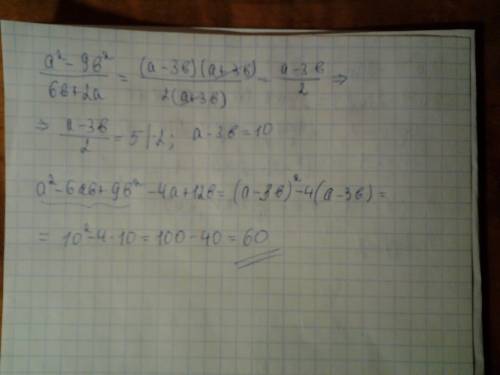 (a² - 9в²)/(6в+2a) = (a-3в)(a+3в)/2(a+3в) = (a-3в)/2 ⇒
⇒ (a-3в)/2 = 5 |·2; a-3в=10
a²-6aв+9в²-4a+12в=(a-3в)²-4(a-3в)=
= 10²-4·10=100-40=60